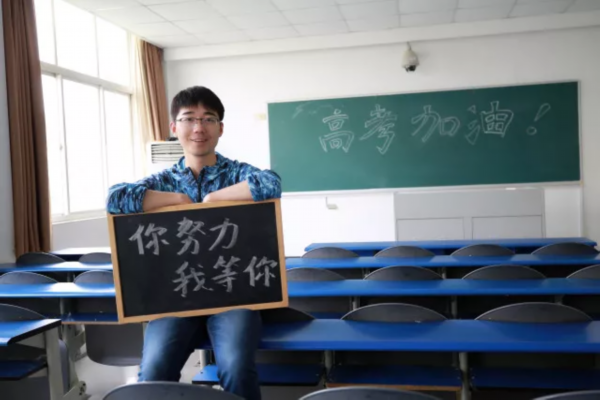 高考加油！
你努力
我等你